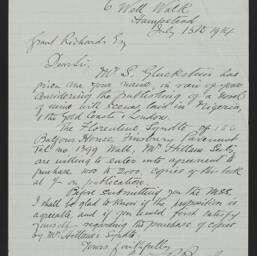 6 Well Walk
Hampstead
July 15th 1924
Grant Richards Esq
Dear Sir,
Mr S. Gluckstein has
given me your name, in view of your
considering the publishing of a novel
of mine with scenes laid in Nigeria,
the Gold Coast & London.
The Florentine Syndte of 186
Balfour House, Finsbury Pavement
Tel no 1849 Wall, Mr
are willing to enter into agreement to
purchase up to 2000 copies of this book
at on publication.
Before submitting you the MSS.
I shall be glad to know if the proposition is
agreeable, and if you would first satisfy
yourself regarding the purchase of copies
by Mr Syndte
Yours faithfully